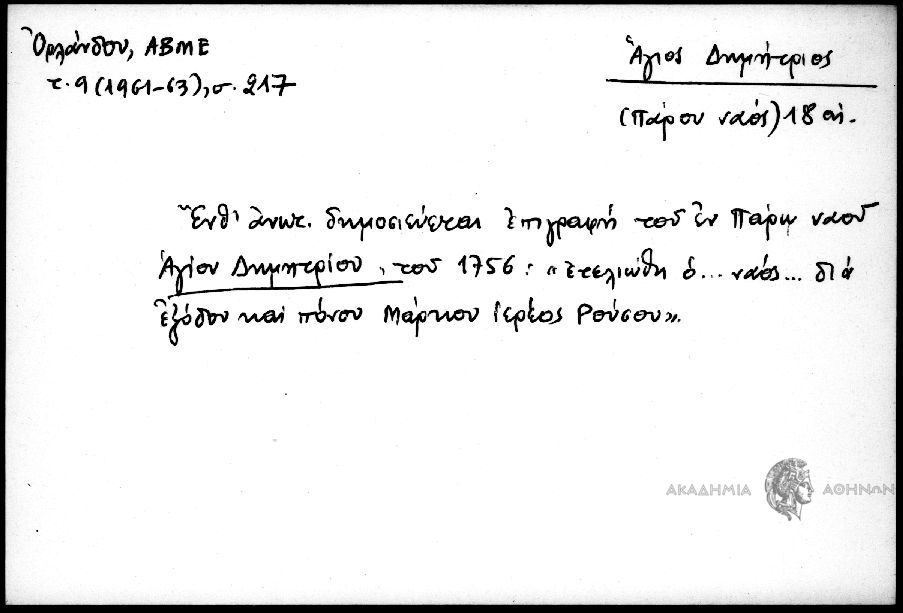 Ὀρλάνδου, ΑΒΜΕ
τ. 9 (1961-63), σ. 217
Ἅγιος Δημήτριος
(Πάρου ναός) 18 αἰ.
Ἔνθ' ἀνωτ. δημοσιεύεται ἐπιγραφή τοῦ ἐν Πάρῳ ναοῦ
Ἁγίου Δημητρίου, τοῦ 1756: «ἐτελιώθη ὁ... ναός... διά
ἐξόδου καί πόνου Μάρκου Ἱερέος Ρούσου».
ΑΚΑΔΗΜΙΑ ΑΘΗΝΩΝ